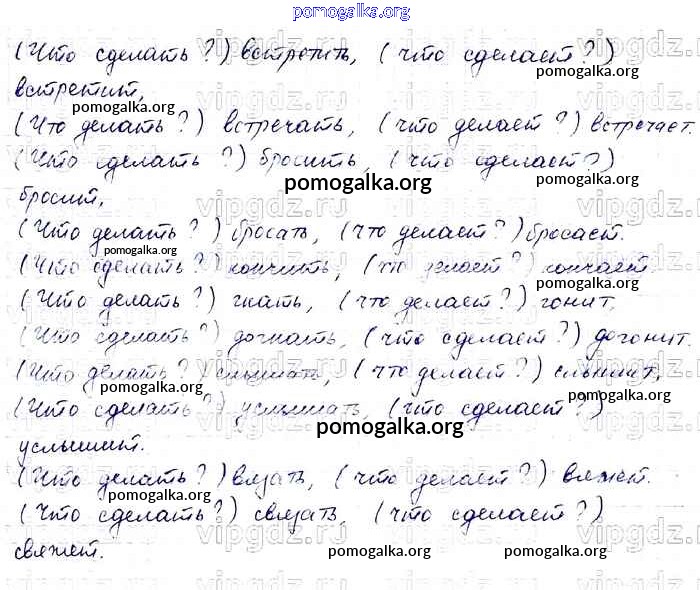 pomogalka.org
(Что сделать?) встретить, (что сделает?)
pomogalka.org
встретит,
pomogalka.org
(Что делать?) встречать, (что делает?) встречает.
(Что сделать?) бросить, (что сделает?)
pomogalka.org
pomogalka.org
бросит,
(Что делать?) бросать, (что делает?) бросает.
pomogalka.org
(Что сделать?) кончить, (что делает?) кончает.
pomogalka.org
(Что делать?) гнать, (что делает?) гонит,
(Что сделать?) догнать, (что сделает?) догонит.
(Что делать?) слышать, (что делает?) слышит,
pomogalka.org
pomogalka.org
(Что сделать?) услышать, (что сделает?)
pomogalka.org
услышит.
(Что делать?) вязать, (что делает?) вяжет.
pomogalka.org
(Что сделать?) связать, (что сделает?)
свяжет.
pomogalka.org
pomogalka.org
vipgdz.ru